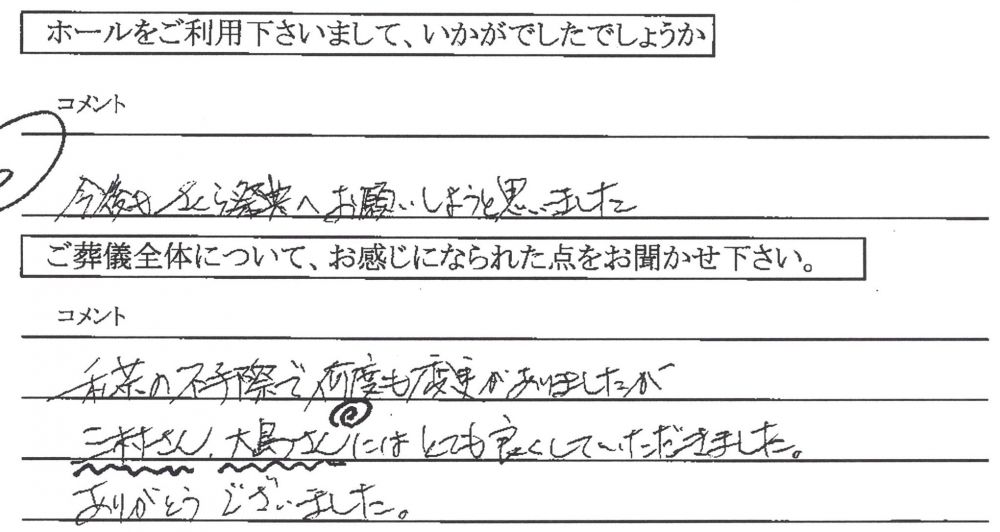 ホールをご利用下さいまして、いかがでしたでしょうか
コメント
今後もさくら祭典へお願いしようと思いました
ご葬儀全体について、お感じになられた点をお聞かせ下さい。
コメント
私共の不手際で何度も変更がありましたが
三村さん、大島さんにはとても良くしていただきました。
ありがとうございました。